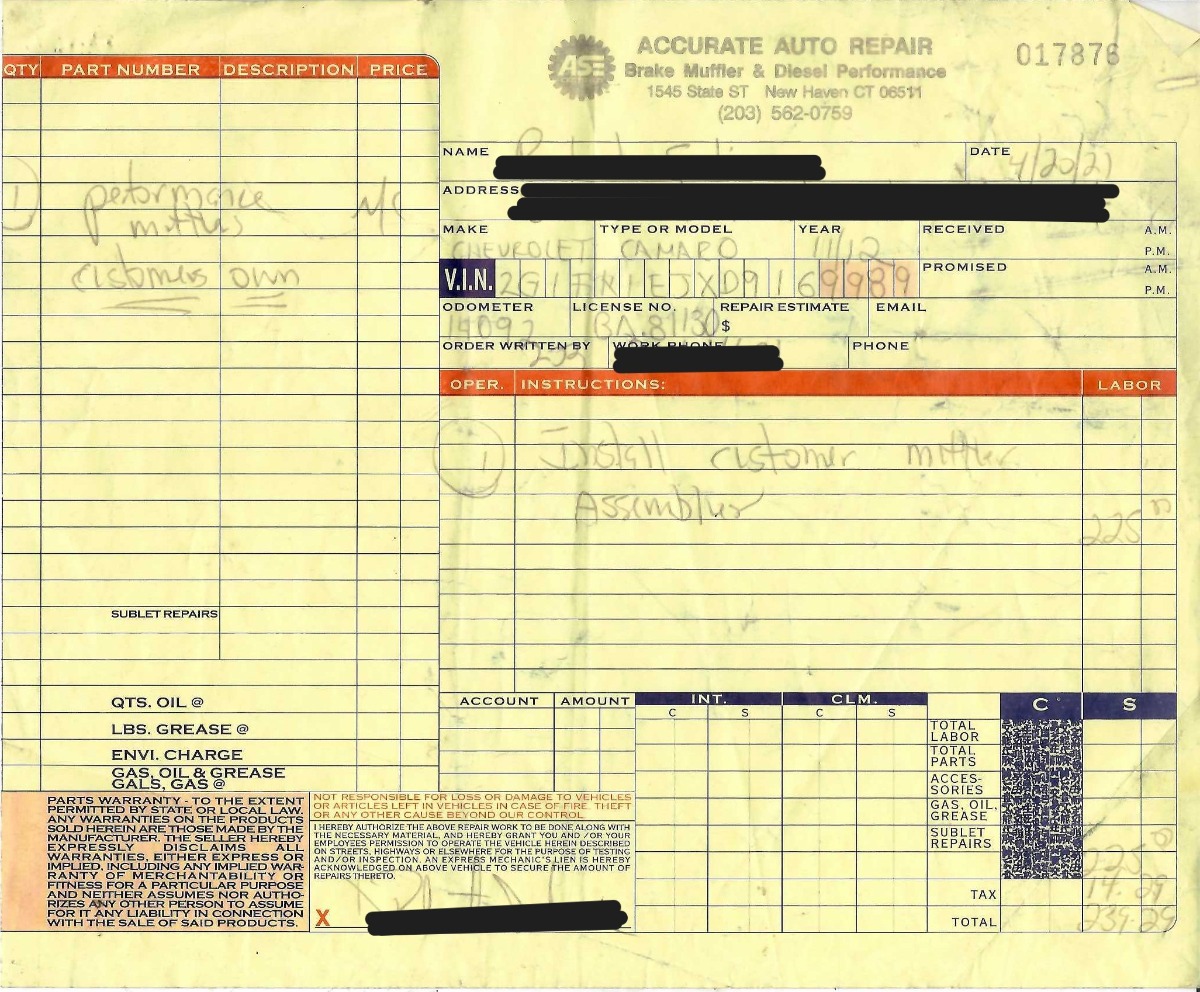 ACCURATE AUTO REPAIR
ASE
Brake Muffler & Diesel Performance
1545 State ST New Haven CT 06511
(203) 562-0759
017876
QTY PART NUMBER DESCRIPTION PRICE
1 performance N/C
mufflers
customers own
SUBLET REPAIRS
QTS. OIL @
LBS. GREASE @
ENVI. CHARGE
GAS, OIL & GREASE
GALS, GAS @
NAME DATE 4/20/21
ADDRESS
MAKE TYPE OR MODEL YEAR RECEIVED A.M.
CHEVROLET CAMARO 11/12 P.M.
V.I.N. PROMISED A.M.
P.M.
ODOMETER LICENSE NO. REPAIR ESTIMATE EMAIL
BA.81130 $
ORDER WRITTEN BY WORK PHONE PHONE
OPER. INSTRUCTIONS: LABOR
1 Install customer muffler
Assemblies
225 00
ACCOUNT AMOUNT INT. CLM. C S
C S C S
TOTAL LABOR
TOTAL PARTS
ACCES-
SORIES
GAS, OIL,
GREASE
SUBLET
REPAIRS
225 00
TAX 14.29
TOTAL 239.29
PARTS WARRANTY - TO THE EXTENT
PERMITTED BY STATE OR LOCAL LAW.
ANY WARRANTIES ON THE PRODUCTS
SOLD HEREIN ARE THOSE MADE BY THE
MANUFACTURER. THE SELLER HEREBY
EXPRESSLY DISCLAIMS ALL
WARRANTIES, EITHER EXPRESS OR
IMPLIED, INCLUDING ANY IMPLIED WAR-
RANTY OF MERCHANTABILITY OR
FITNESS FOR A PARTICULAR PURPOSE
AND NEITHER ASSUMES NOR AUTHO-
RIZES ANY OTHER PERSON TO ASSUME
FOR IT ANY LIABILITY IN CONNECTION
WITH THE SALE OF SAID PRODUCTS.
NOT RESPONSIBLE FOR LOSS OR DAMAGE TO VEHICLES
OR ARTICLES LEFT IN VEHICLES IN CASE OF FIRE, THEFT
OR ANY OTHER CAUSE BEYOND OUR CONTROL.
I HEREBY AUTHORIZE THE ABOVE REPAIR WORK TO BE DONE ALONG WITH
THE NECESSARY MATERIAL, AND HEREBY GRANT YOU AND / OR YOUR
EMPLOYEES PERMISSION TO OPERATE THE VEHICLE HEREIN DESCRIBED
ON STREETS, HIGHWAYS OR ELSEWHERE FOR THE PURPOSE OF TESTING
AND/OR INSPECTION. AN EXPRESS MECHANIC'S LIEN IS HEREBY
ACKNOWLEDGED ON ABOVE VEHICLE TO SECURE THE AMOUNT OF
REPAIRS THERETO.
X